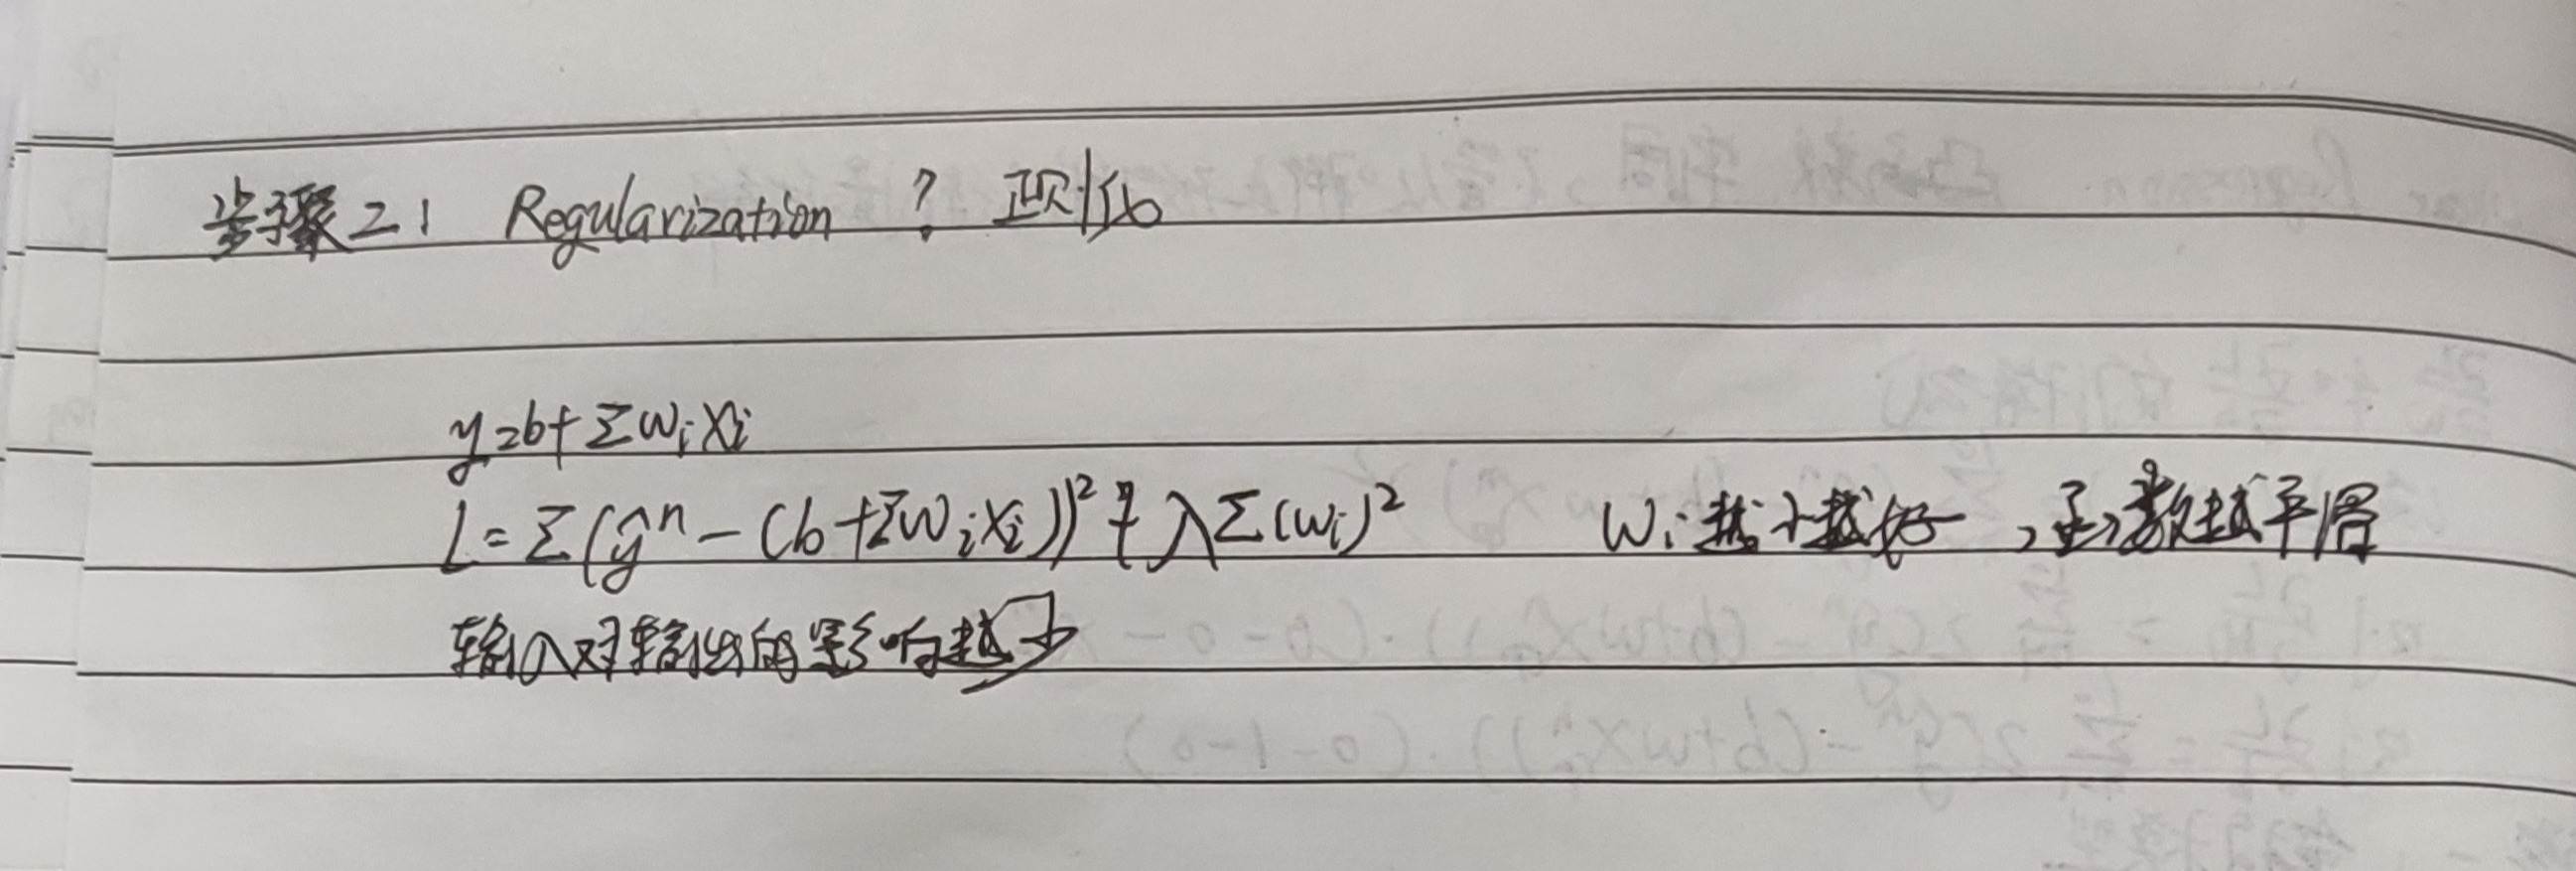 步骤2: Regularization ? 正则化
y=b+Σwixi
L=Σ(ŷⁿ-(b+Σwixi))²+λΣ(wi)² wi越小越好,函数越平滑
输入对输出的影响越少